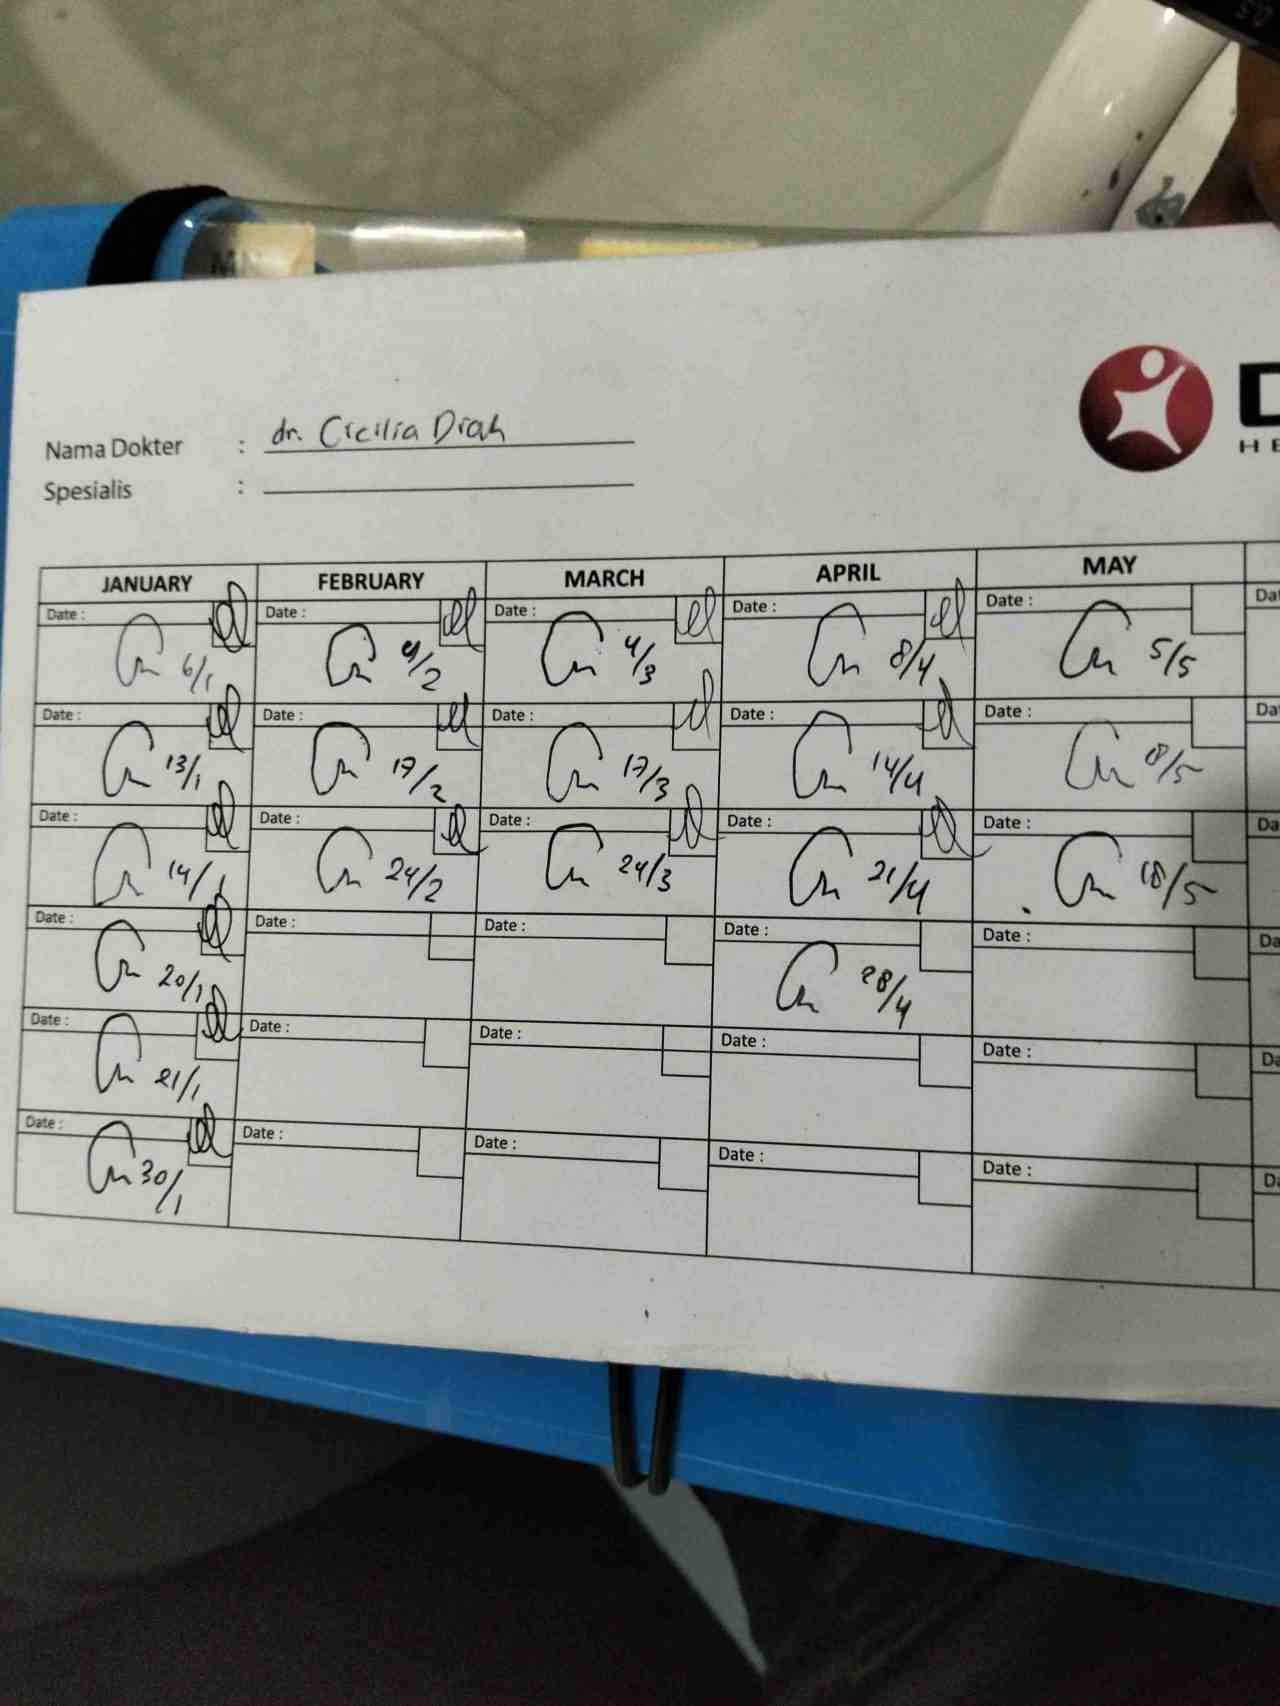 Nama Dokter : dr. Cicilia Diah
Spesialis :
JANUARY FEBRUARY MARCH APRIL MAY
Date : Date : Date : Date : Date :
6/1 4/2 4/3 8/4 5/5
Date : Date : Date : Date : Date :
13/1 17/2 17/3 14/4 8/5
Date : Date : Date : Date : Date :
14/1 24/2 24/3 21/4 18/5
Date : Date : Date : Date : Date :
20/1 28/4
Date : Date : Date : Date : Date :
21/1
Date : Date : Date : Date : Date :
30/1